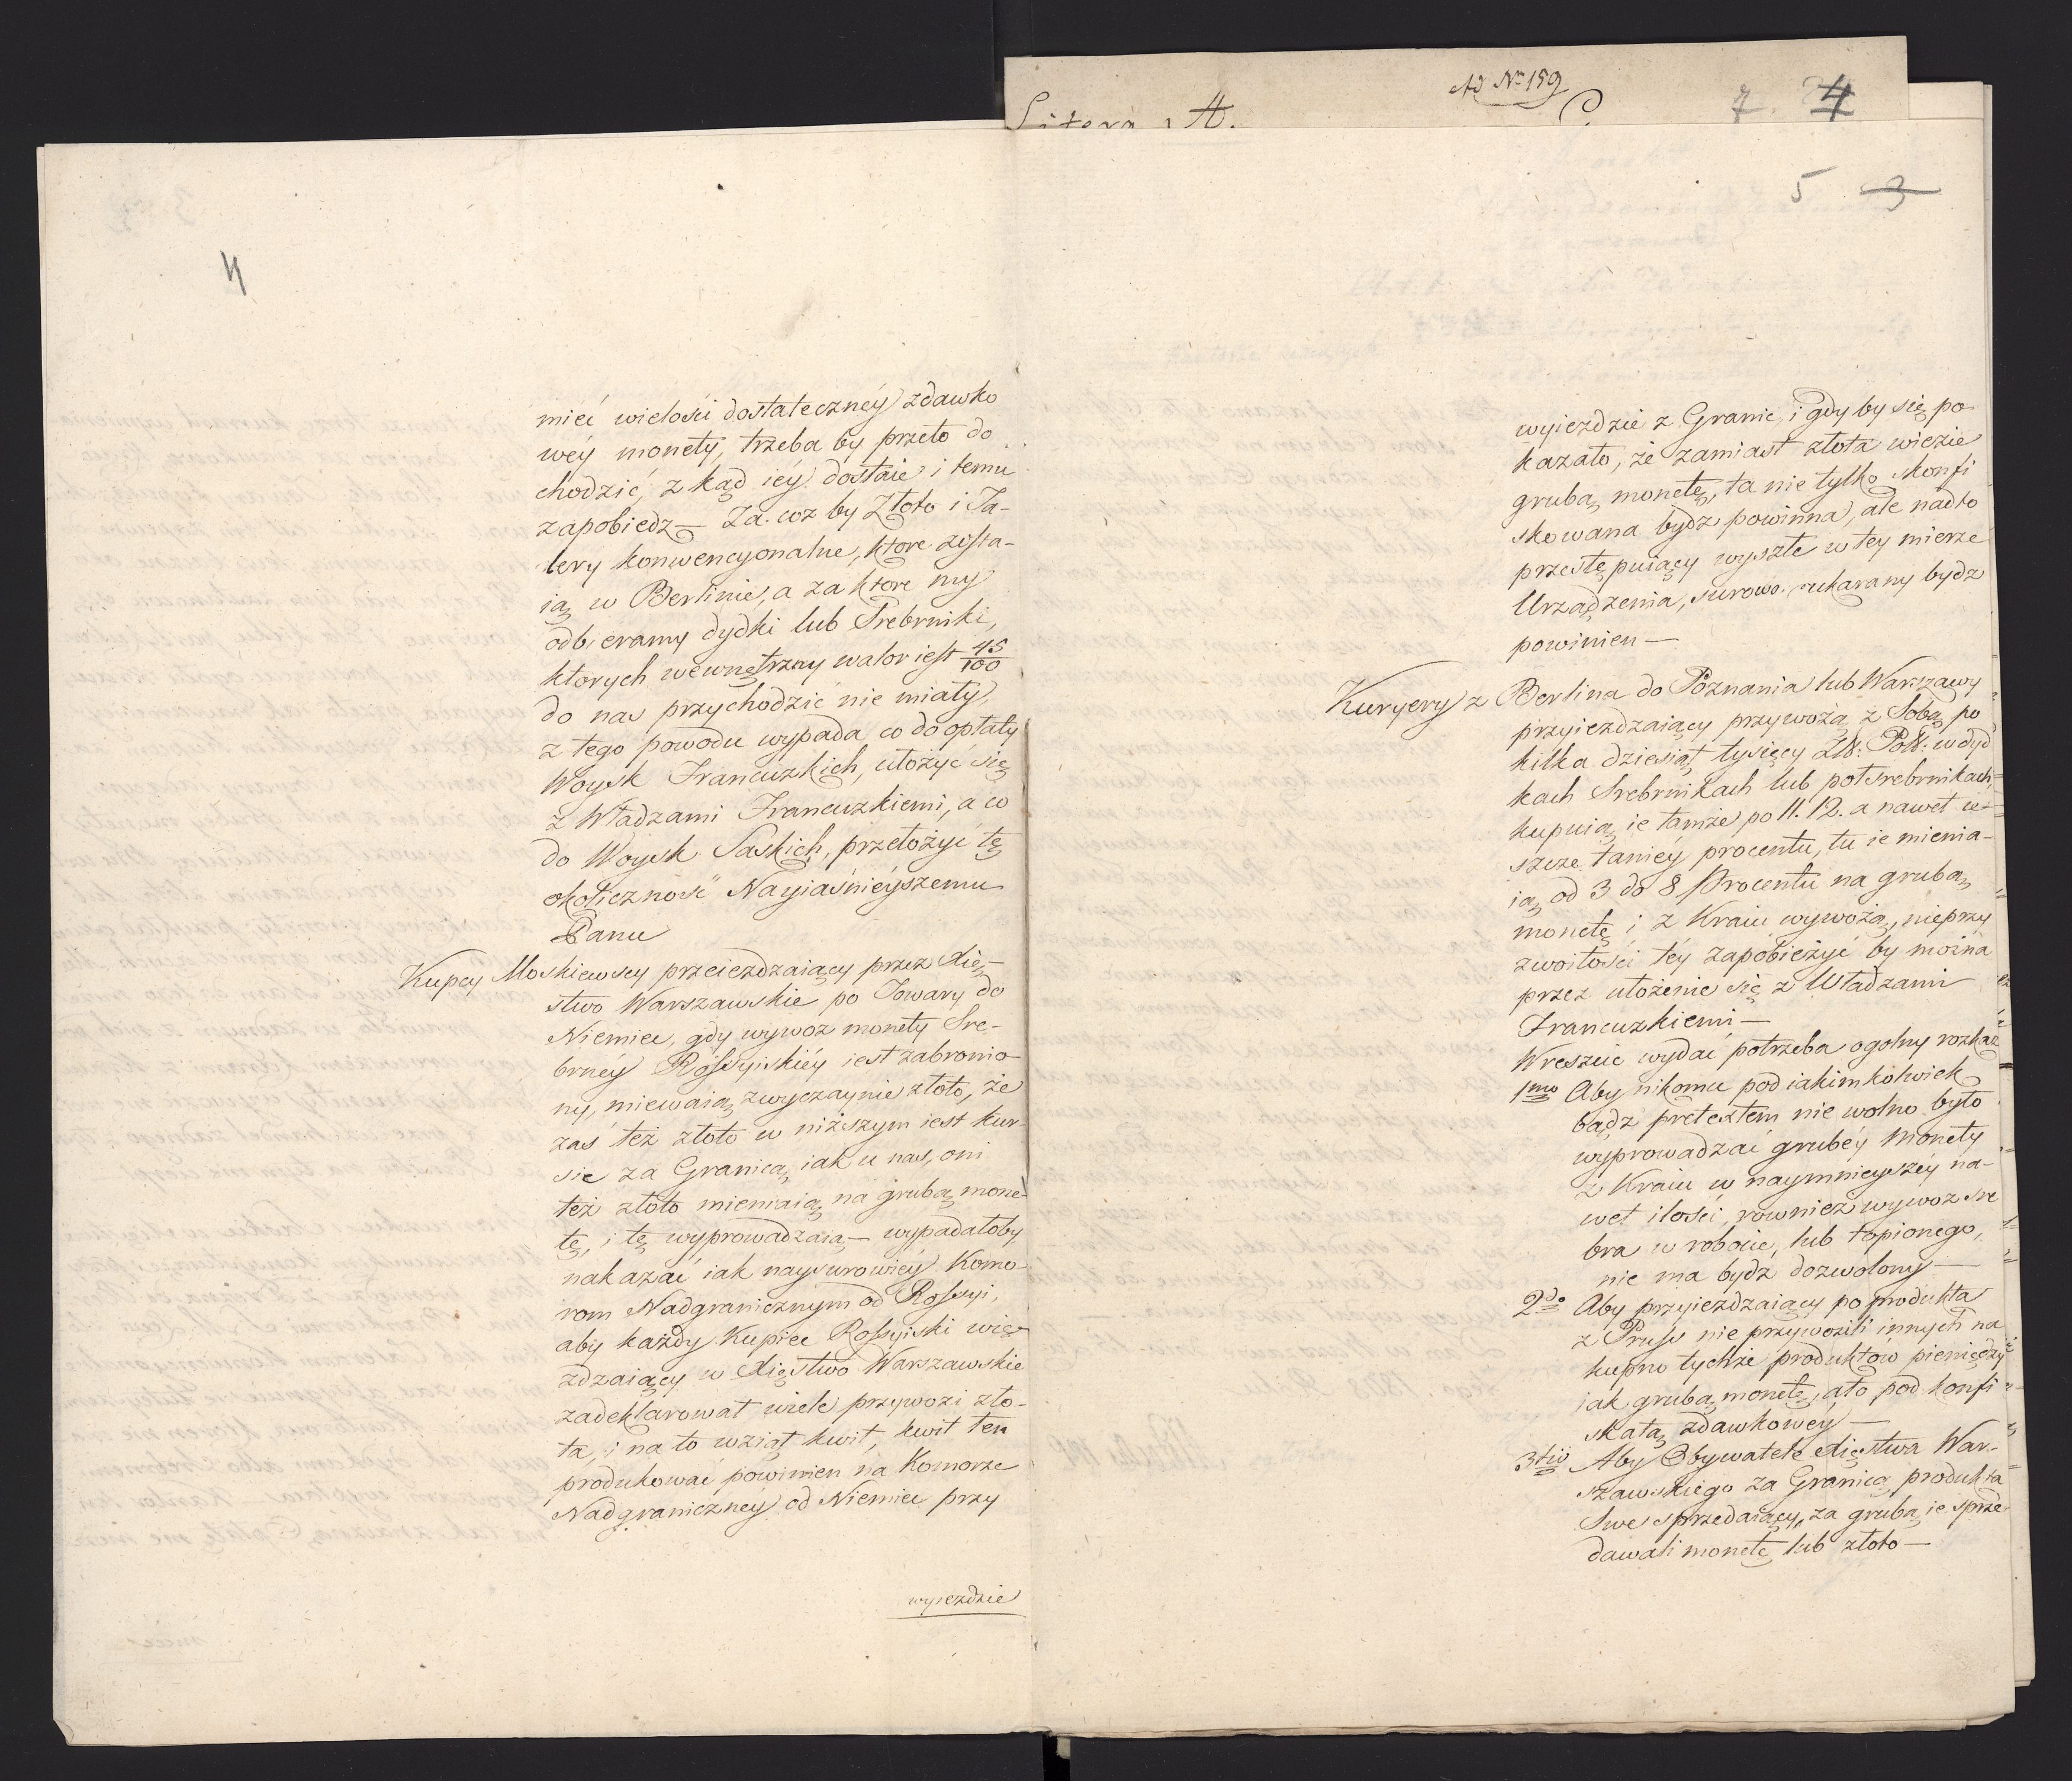 Ad Nr 159
Litera A.
7. 4
4
mieć wielości dostateczney zdawko
wey monety, trzeba by przeto do
chodzić, z kąd iey dostaie i temu
zapobiedz — Za. coż by Złoto i Ta-
lery konwencyonalne, ktore zosta-
ią w Berlinie, a za ktore my
odbieramy dydki lub Srebrniki,
ktorych wewnętrzny walor iest 45/100
do nas przychodzić nie miały,
z tego powodu wypada co do opłaty
Woysk Francuzkich, ułożyć się
z Władzami Francuzkiemi, a co
do Woysk Saskich, przełożyć tę
okoliczność Nayiaśnieyszemu
Panu
Kupcy Moskiewscy przeieżdzaiący przez Xię-
stwo Warszawskie po Towary do
Niemiec, gdy wywoz monety Sre-
brney Rossyiskiey iest zabronio-
ny, miewaią zwyczaynie złoto, że
zas też złoto w niższym iest kur-
sie za Granicą, iak u nas, oni
też złoto mieniaią na grubą mone-
tę, i tę wyprowadzaią — wypadałoby
nakazać iak naysurowiey Komo-
rom Nadgranicznym od Rossyi,
aby każdy Kupiec Rossyiski wie-
zdzaiący w Xięstwo Warszawskie
zadeklarował wiele przywozi zło-
ta, i na to wziął kwit, kwit ten
produkować powinien na Komorze
Nadgraniczney od Niemiec przy
wyiezdzie
5 3
wyiezdzie z Granic, i gdy by się po-
kazało, że zamiast złota wiezie
grubą monetę, ta nie tylko skonfi
skowana bydz powinna, ale nadto
przestępuiący wyszłe w tey mierze
Urządzenia, surowo ukarany bydz
powinien —
Kuryery z Berlina do Poznania lub Warszawy
przyiezdzaiący przywożą z Sobą po
kilka dziesiąt tysięcy Zł: Pol: w dyd
kach Srebrnikach lub połsrebrnikach,
kupuią ie tamże po 11. 12. a nawet ie-
szcze taniey procentu, tu ie mienia-
ią od 3 do 8 Procentu na grubą
monetę i z Kraiu wywożą, nieprzy
zwoitości tey zapobieżyć by można
przez ułożenie się z Władzami
Francuzkiemi —
Wreszcie wydać potrzeba ogolny rozkaz
1mo Aby nikomu pod iakimkolwiek
bądz pretextem nie wolno było
wyprowadzać grubey Monety
z Kraiu w naymnieyszey na-
wet ilości, rownież wywoz sre
bra w robocie, lub topionego,
nie ma bydz dozwolony —
2do Aby przyiezdzaiący po produkta
z Pruss nie przywozili innych na
kupno tychże produktow pieniędzy
iak grubą monetę, a to pod konfi
skatą zdawkowey —
3tio Aby Obywatele Xięstwa War-
szawskiego za Granicą produkta
Swe sprzedaiący, za grubą ie sprze
dawali monetę lub złoto —